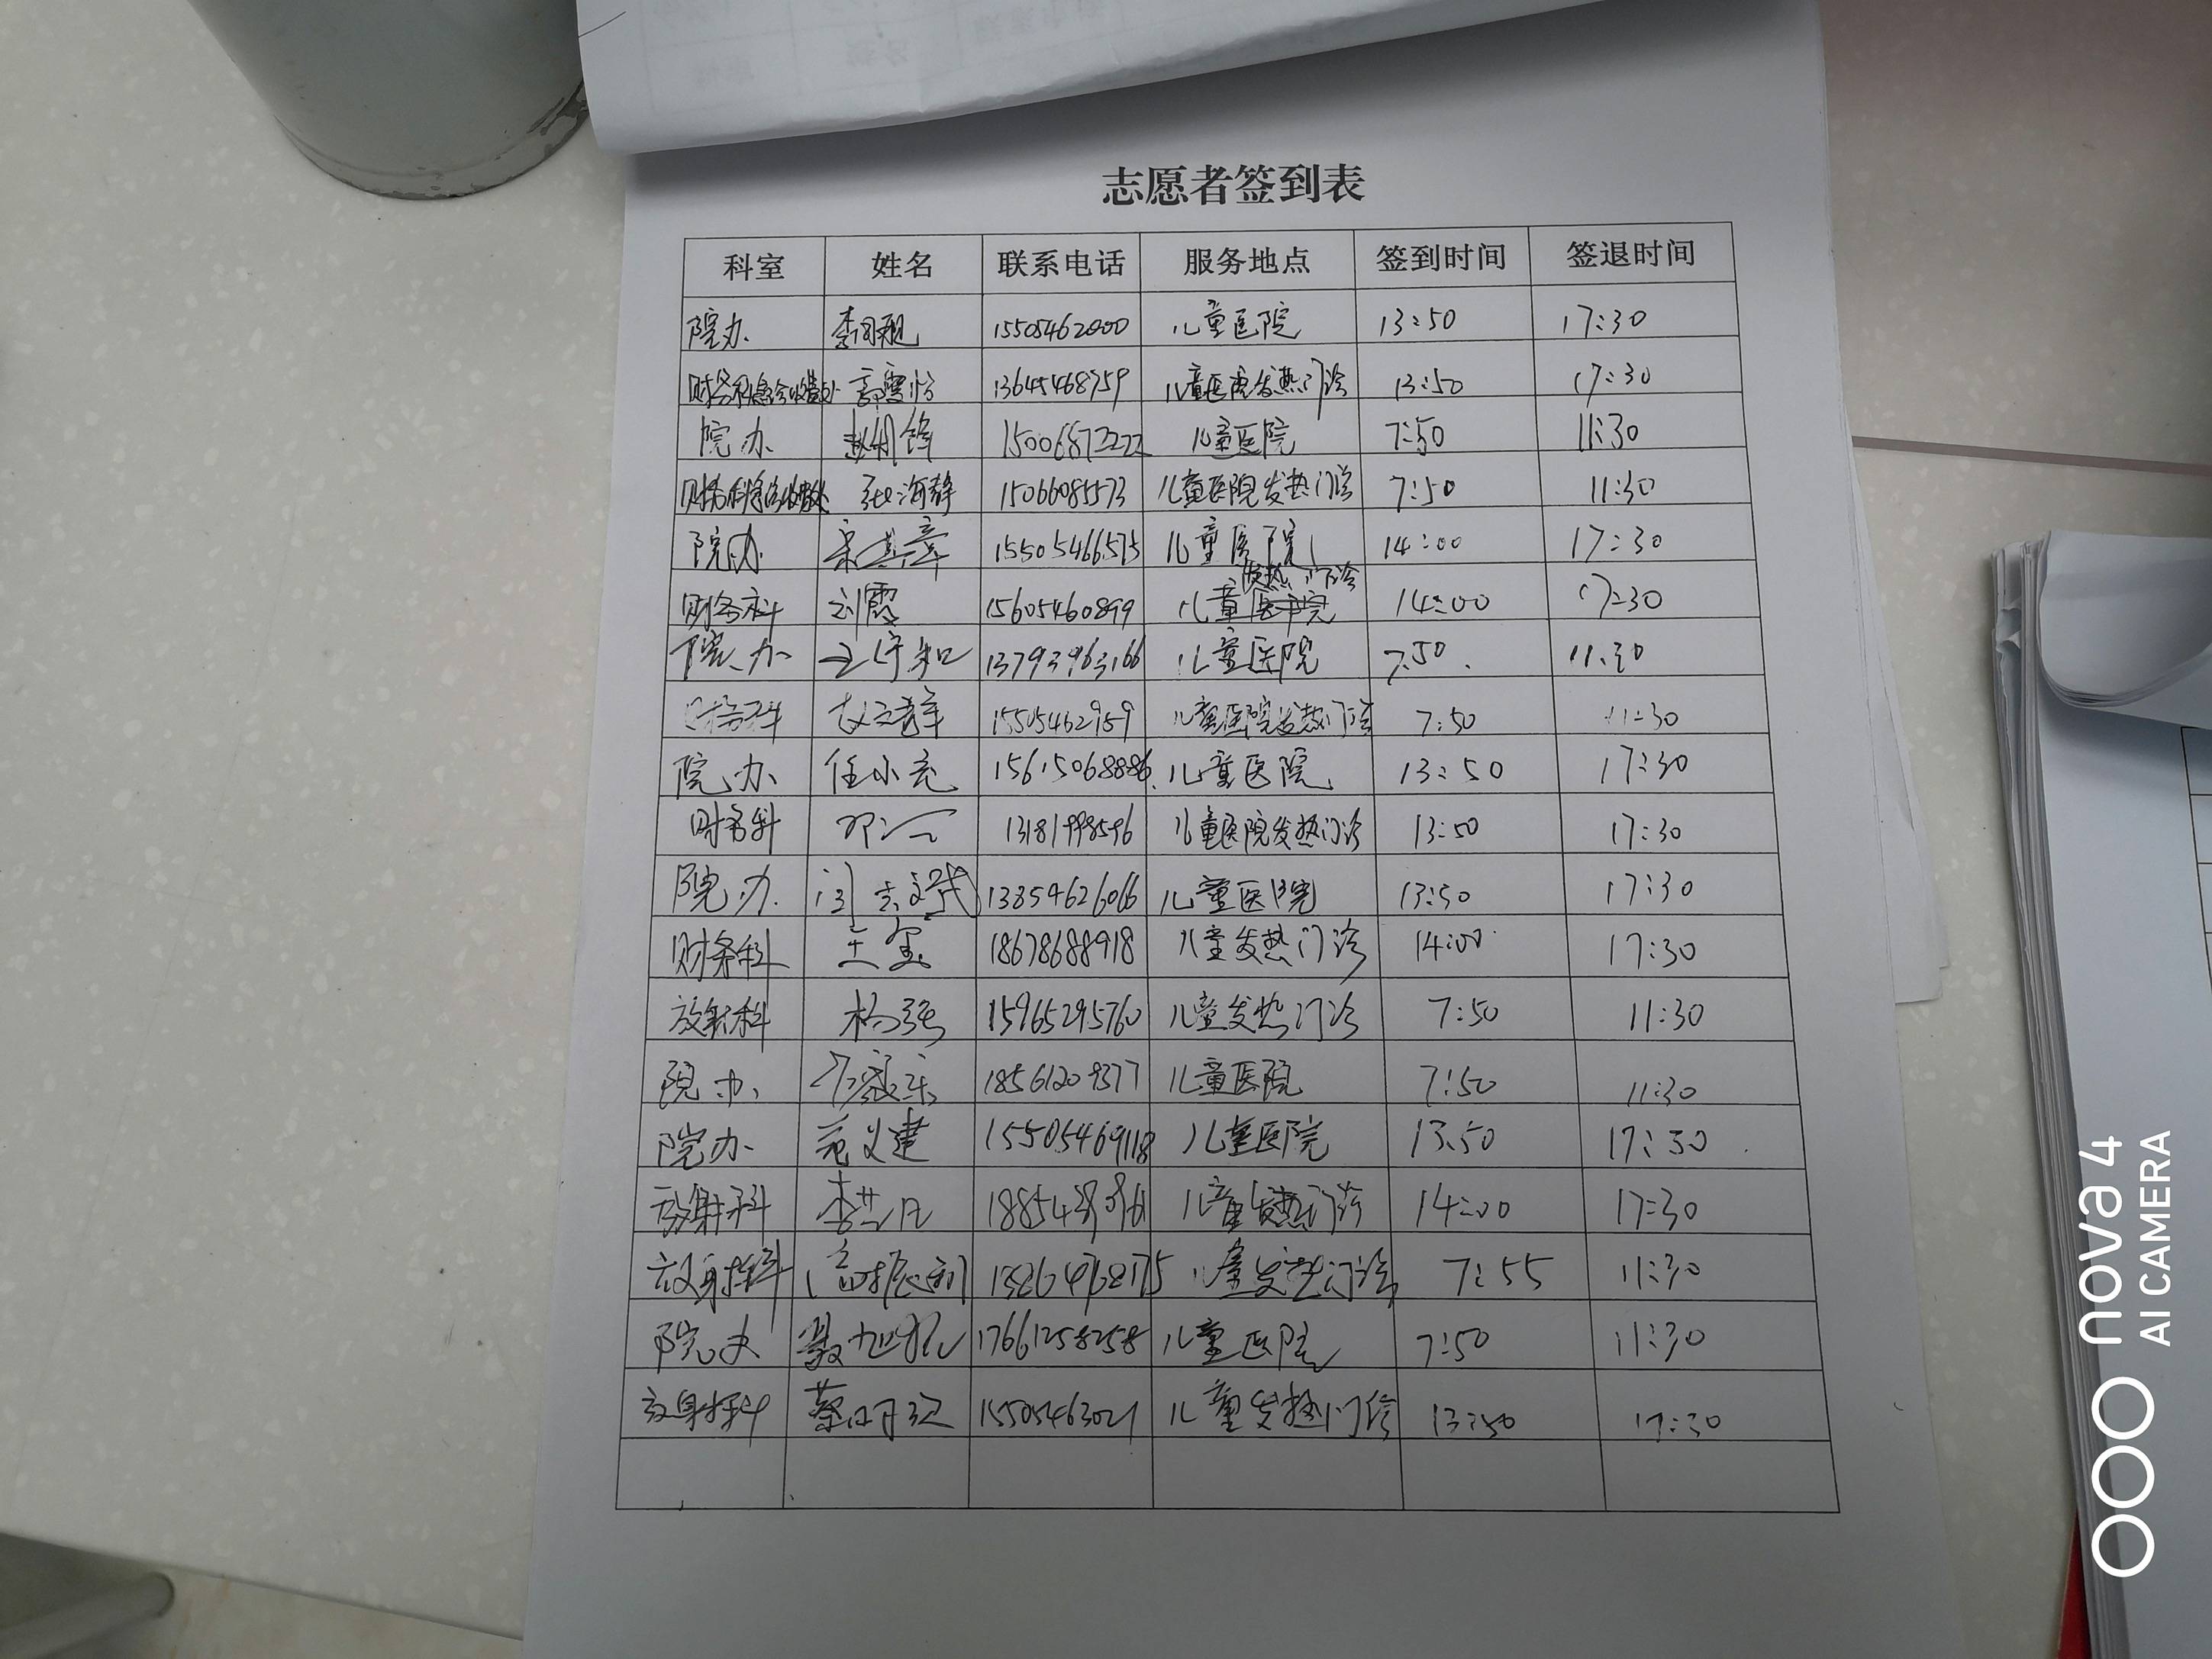 志愿者签到表
科室 姓名 联系电话 服务地点 签到时间 签退时间
院办 15505462000 儿童医院 13:50 17:30
财务科急诊收费处 13645468759 儿童医院发热门诊 13:50 17:30
院办 15006873222 儿童医院 7:50 11:30
财务科急诊收费处 张海静 15066085573 儿童医院发热门诊 7:50 11:30
院办 15505466575 儿童医院 14:00 17:30
财务科 刘霞 15605460899 儿童发热门诊 14:00 17:30
院办 13793963166 儿童医院 7:50 11:30
财务科 15505462959 儿童医院发热门诊 7:50 11:30
院办 任小亮 15615068886 儿童医院 13:50 17:30
财务科 13181998596 儿童医院发热门诊 13:50 17:30
院办 13854626066 儿童医院 13:50 17:30
财务科 王玺 18678688918 儿童发热门诊 14:00 17:30
放射科 杨强 15965295760 儿童发热门诊 7:50 11:30
院办 18561209377 儿童医院 7:50 11:30
院办 范义建 15505469118 儿童医院 13:50 17:30
放射科 儿童发热门诊 14:00 17:30
放射科 儿童发热门诊 7:55 11:30
院办 17661258258 儿童医院 7:50 11:30
放射科 15505463021 儿童发热门诊 13:50 17:30
nova 4
AI CAMERA